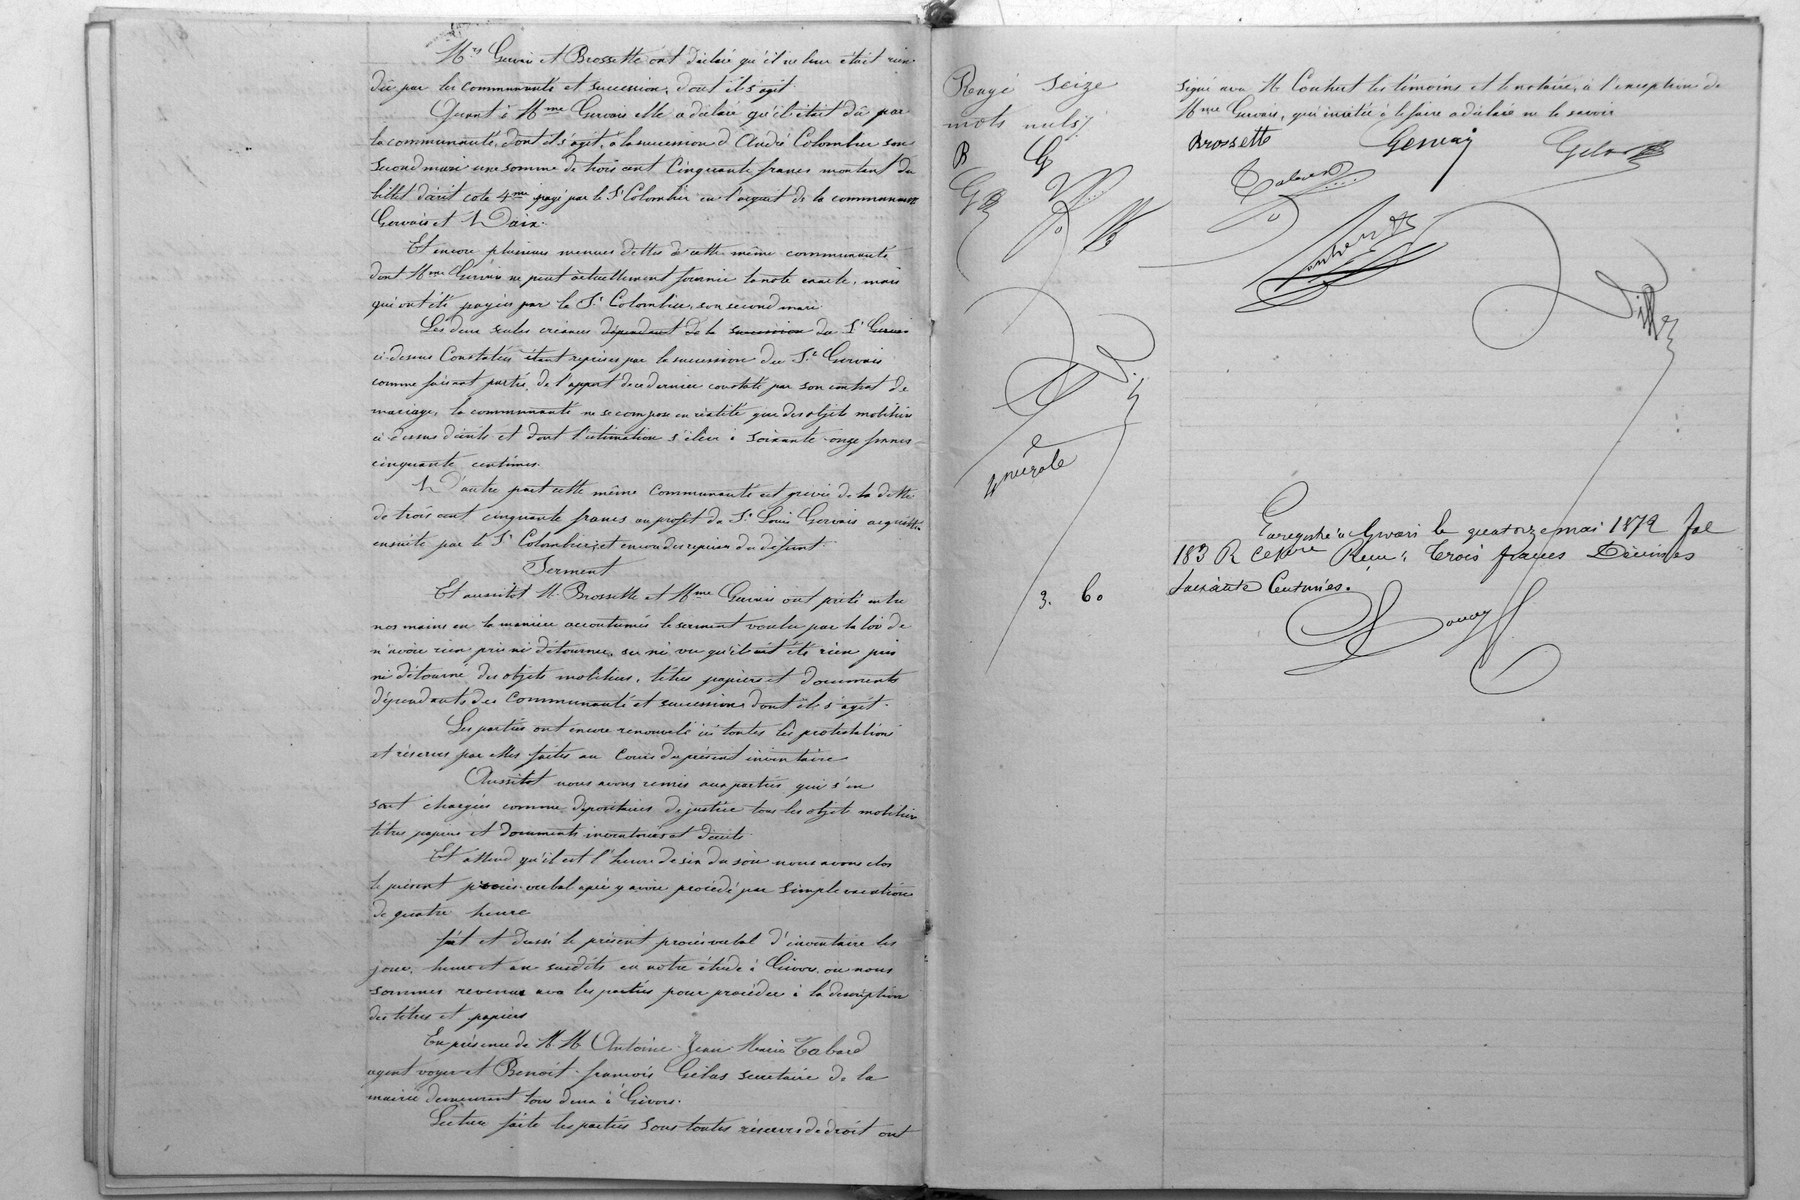 Mrs Gervais et Brossette ont déclaré qu'il ne leur était rien
dû par les communauté et succession, dont il s'agit
Quant à Mme Gervais elle a déclaré qu'il était dû par
la communauté, dont il s'agit, a la succession d'André Colombier son
second mari une somme de trois cent cinquante francs montant du
billet décrit cote 4me payé par le Sr Colombier en l'acquit de la communauté
Gervais et
Et encore plusieurs menues dettes de cette même communauté
dont Mme Gervais ne peut actuellement fournir la note exacte, mais
qui ont été payées par le Sr Colombier, son second mari
Les deux seules créances dépendant de la succession du Sr Gervais
ci-dessus constatées étant reprises par la succession du Sr Gervais
comme faisant partie de l'apport de ce dernier constaté par son contrat de
mariage, la communauté ne se compose en réalité que des objets mobiliers
ci-dessus décrits et dont l'estimation s'élève à soixante-onze francs
cinquante centimes.
D'autre part cette même communauté est grevée de la dette
de trois cent cinquante francs au profit du Sr Louis Gervais acquittée
ensuite par le Sr Colombier, et encore des reprises du défunt
Serment
Et aussitôt M. Brossette et Mme Gervais ont prêté entre
nos mains en la manière accoutumée le serment voulu par la loi de
n'avoir rien pris ni détourné, su ni vu qu'il ait été rien pris
ni détourné des objets mobiliers, titres papiers et documents
dépendants des communauté et succession dont il s'agit.
Les parties ont encore renouvelé ici toutes les protestations
et réserves par elles faites au cours du présent inventaire
Aussitôt nous avons remis aux parties qui s'en
sont chargées comme dépositaires de justice tous les objets mobiliers
titres papiers et documents inventoriés et décrits
Et attend qu'il est l'heure de six du soir nous avons clos
le présent procès-verbal après y avoir procédé par simple vacation
de quatre heure
fait et dressé le présent procès verbal d'inventaire les
jour, heure et an susdits en notre étude à Givors, où nous
sommes revenus avec les parties pour procéder à la description
des titres et papiers
En présence de M M Antoine Jean Marie Tabard
agent voyer et Benoit françois Gélas secretaire de la
mairie demeurant tous deux à Givors.
Lecture faite les parties sous toutes réserves de droit ont
Rayé seize
mots nuls
B G
signé avec M Coutert les témoins et le notaire, à l'exception de
Mme Gervais, qui invitée à le faire a déclaré ne le savoir
Brossette Gervais Gelas
Tabard
Enregistré à Givors le quatorze mai 1872 fol
183 R Reçu: trois francs Décimes
Soixante Centimes.
3. 60